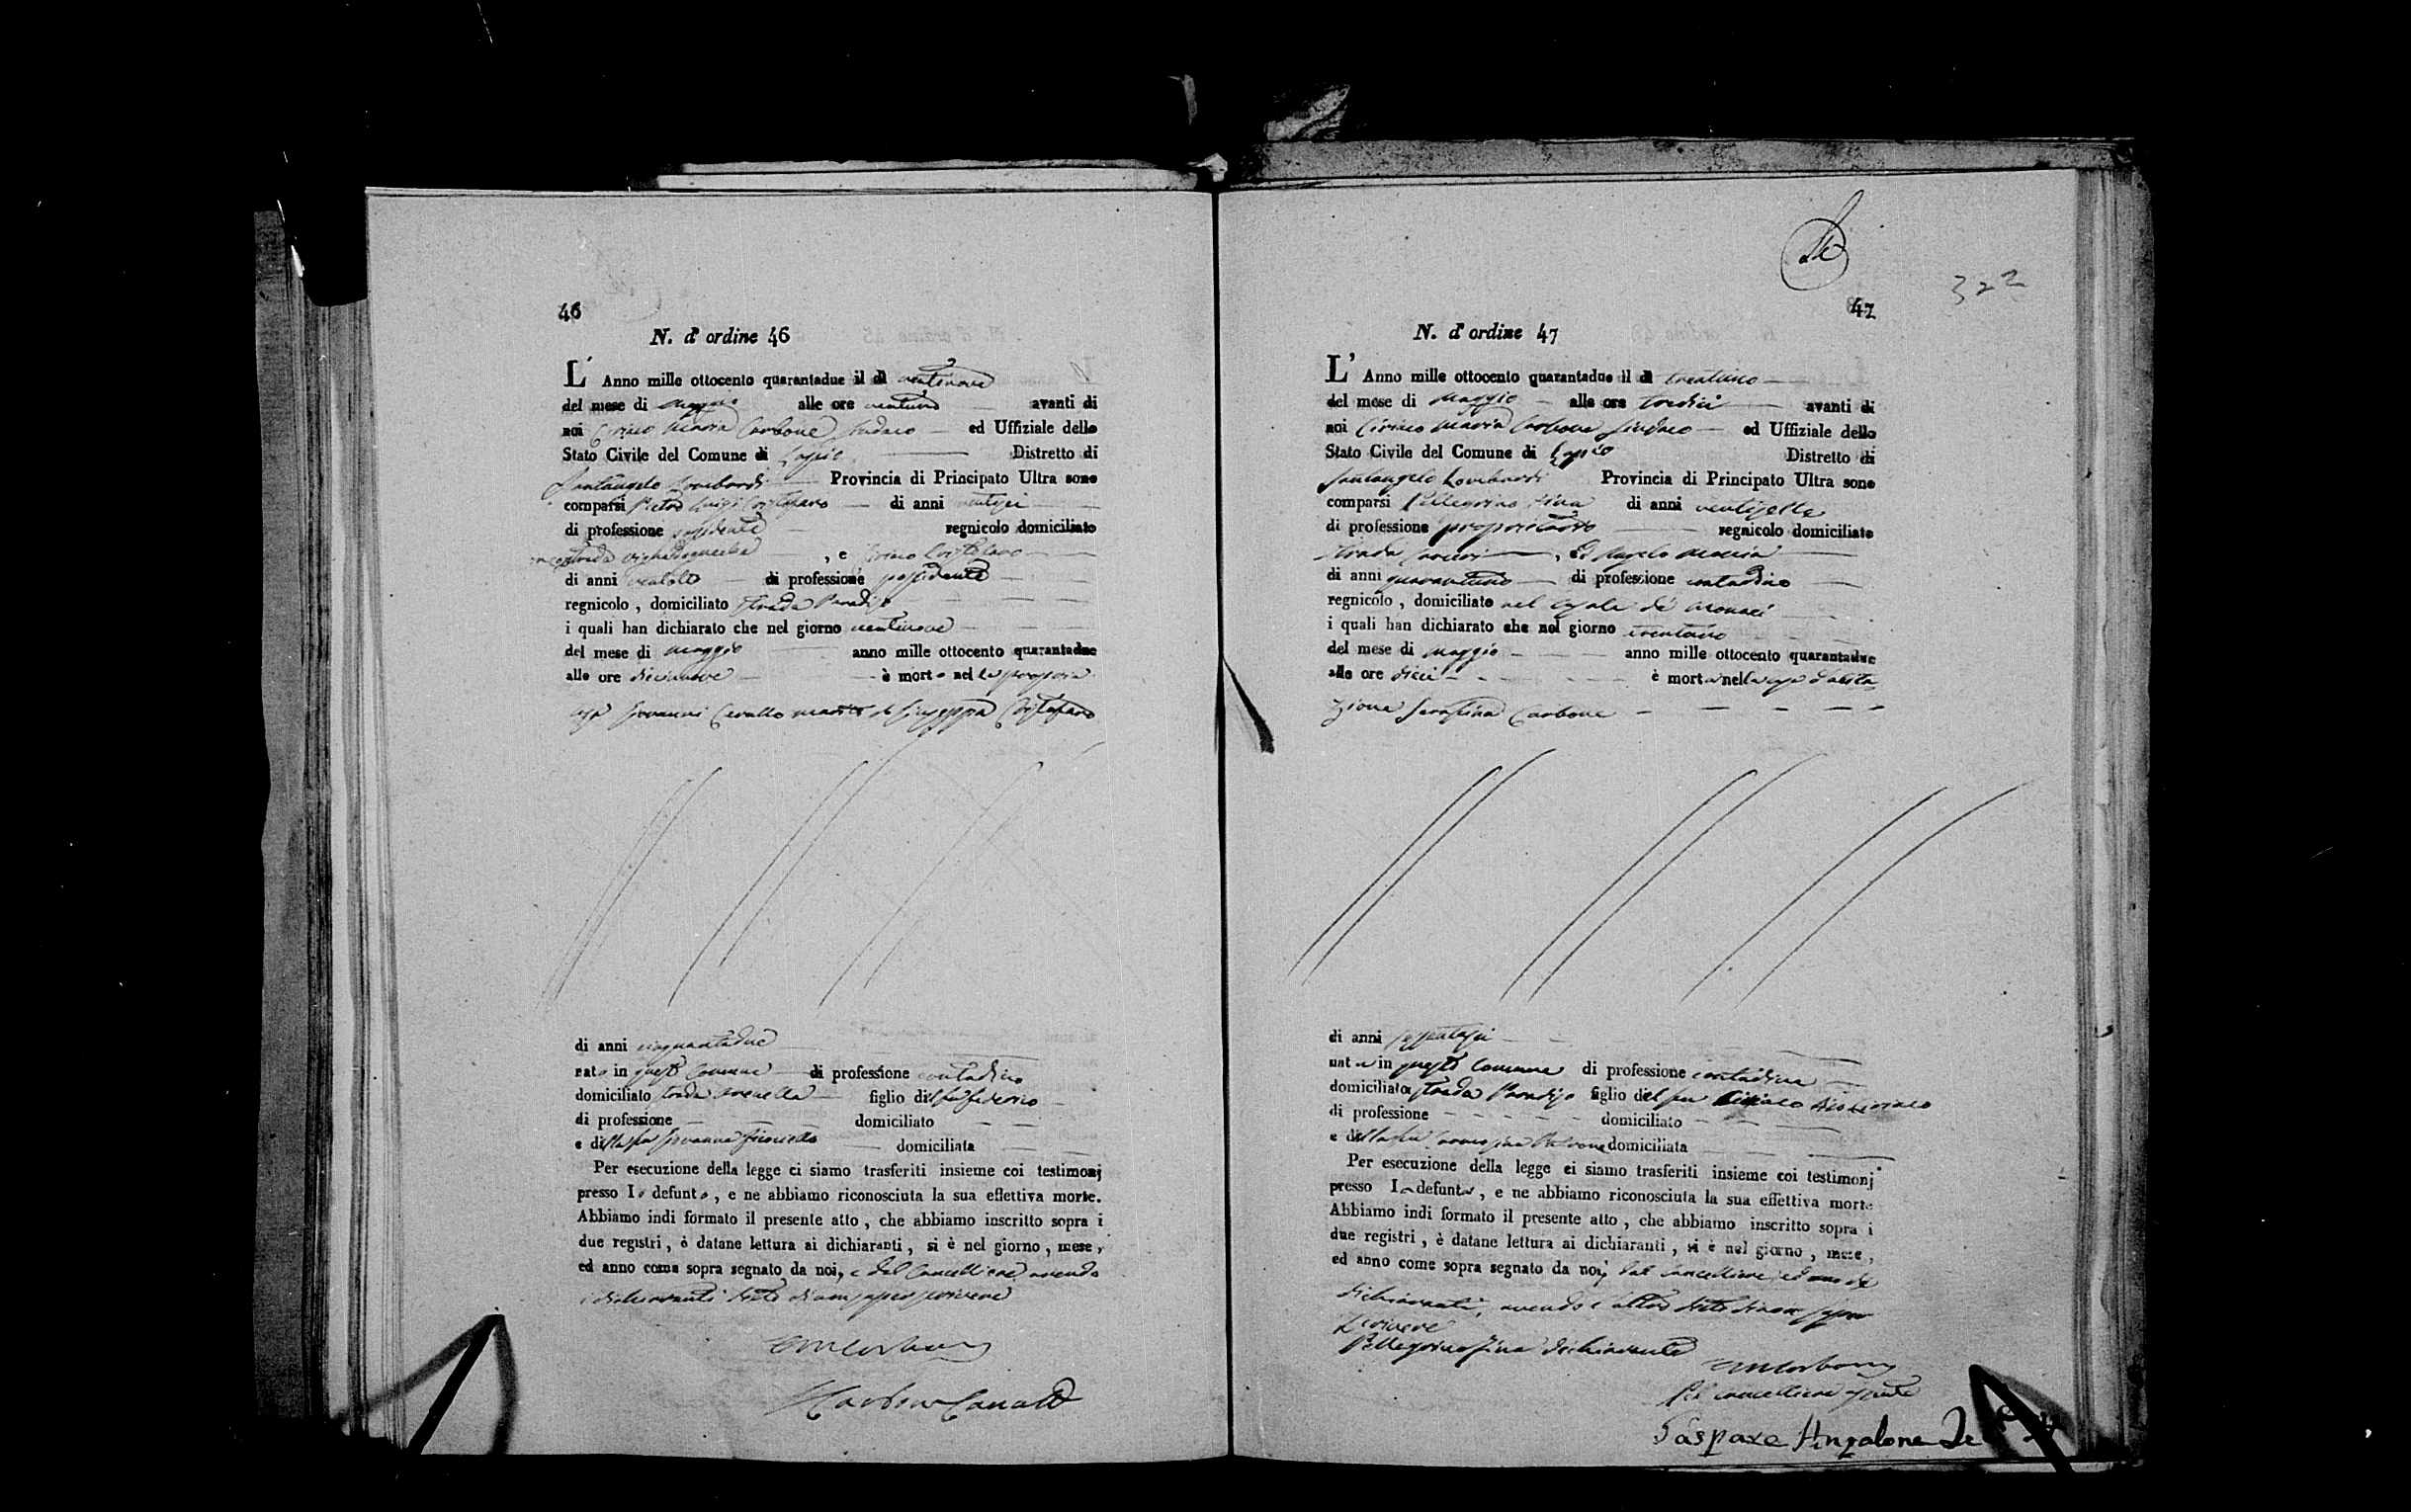 46
N. d'ordine 46
L' Anno mille ottocento quarantadue il dì ventinove
del mese di Maggio alle ore ventuno avanti di
noi Cirino Maria Carbone Sindaco ed Uffiziale dello
Stato Civile del Comune di Lapio Distretto di
Santangelo Lombardi Provincia di Principato Ultra sono
comparsi Pietro Luigi Cristofaro di anni ventisei
di professione possidente regnicolo domiciliato
strada , e Cristofaro
di anni di professione possidente
regnicolo , domiciliato strada Paradiso
i quali han dichiarato che nel giorno ventinove
del mese di maggio anno mille ottocento quarantadue
alle ore diecinove è morto nella propria
casa Giovanni Carullo marito di Giuseppa Cristofaro
di anni cinquantadue
nato in questo Comune di professione contadino
domiciliato strada figlio del fu Federico
di professione domiciliato
e della fu Giovanna domiciliata
Per esecuzione della legge ci siamo trasferiti insieme coi testimonj
presso Lo defunto, e ne abbiamo riconosciuta la sua effettiva morte.
Abbiamo indi formato il presente atto, che abbiamo inscritto sopra i
due registri, è datane lettura ai dichiaranti, si è nel giorno, mese,
ed anno come sopra segnato da noi, e dal Cancelliere avendo
i dichiaranti detto di non sapere scrivere
CMCarbone
47
322
N. d'ordine 47
L' Anno mille ottocento quarantadue il dì trentuno
del mese di Maggio alle ore tredici avanti di
noi Cirino Maria Carbone Sindaco ed Uffiziale dello
Stato Civile del Comune di Lapio Distretto di
Santangelo Lombardi Provincia di Principato Ultra sono
comparsi Pellegrino Zina di anni ventisette
di professione proprietario regnicolo domiciliato
strada , ed Angelo
di anni quarantuno di professione contadino
regnicolo , domiciliato nel casale de
i quali han dichiarato che nel giorno trentuno
del mese di maggio anno mille ottocento quarantadue
alle ore dieci è morta nella casa d'abita
zione Serafina Carbone
di anni sessantasei
nata in questo Comune di professione contadina
domiciliata strada Paradiso figlio del fu
di professione domiciliato
e della fu domiciliata
Per esecuzione della legge ci siamo trasferiti insieme coi testimonj
presso La defunta, e ne abbiamo riconosciuta la sua effettiva morte
Abbiamo indi formato il presente atto, che abbiamo inscritto sopra i
due registri, è datane lettura ai dichiaranti, si è nel giorno, mese,
ed anno come sopra segnato da noi, dal Cancelliere, ed uno de
dichiaranti, avendo l'altro detto di non sapere
scrivere
Pellegrino Zina dichiarante
CMCarbone
Pel cancelliere assente
Gaspare